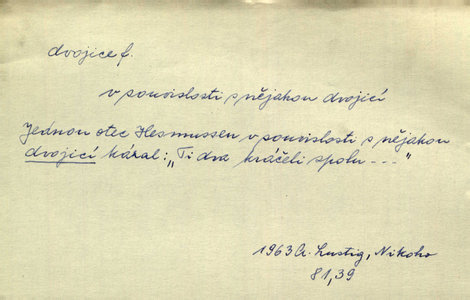 dvojice f.
v souvislosti s nějakou dvojicí
Jednou otec Hesmussen v souvislosti s nějakou
dvojicí kázal: „Ti dva kráčeli spolu - - -"
1963 A. Lustig, Nikoho
81,39